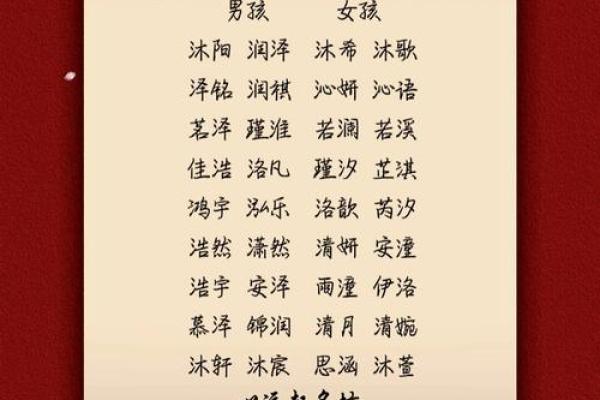 男孩 女孩
沐阳 润泽 沐希 沐歌
泽铭 润祺 沁妍 沁语
茗泽 瑾淮 若澜 若溪
佳浩 洛凡 瑾汐 芷淇
鸿宇 泓乐 洛歆 芮汐
浩然 潇然 清妍 安潼
浩宇 安泽 雨潼 伊洛
慕泽 锦润 清月 清婉
沐轩 沐宸 思涵 沐萱